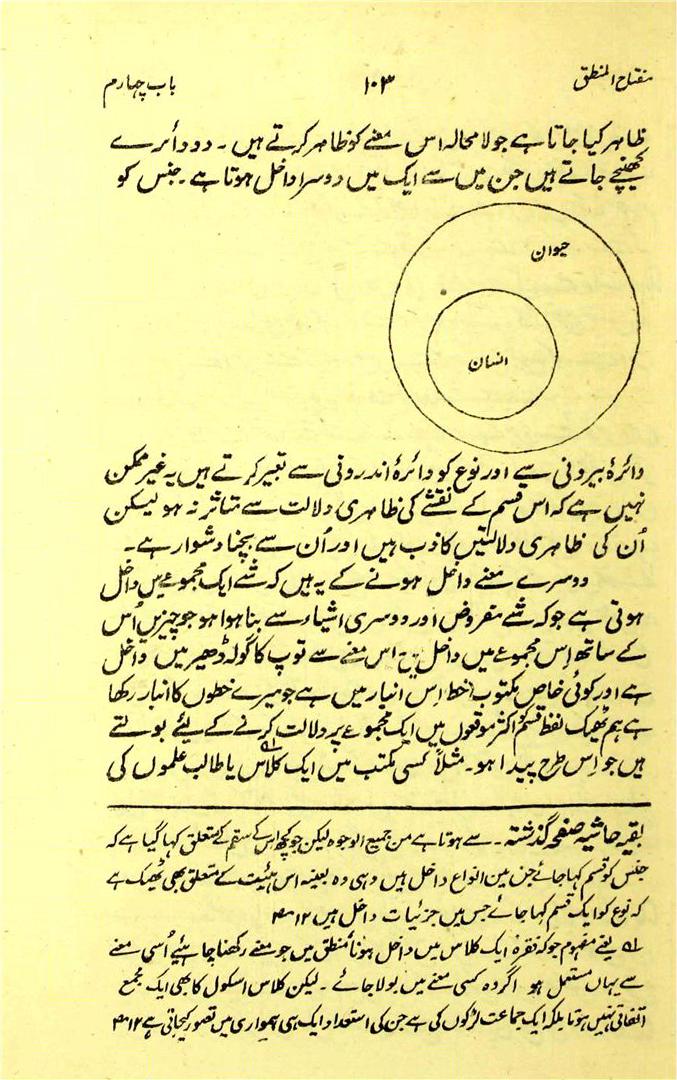 مفتاح المنطق ۱۰۳ باب چہارم
ظاہر کیا جاتا ہے جو لا محالہ اس معنے کو ظاہر کرتے ہیں ۔ دو دائرے
کھینچے جاتے ہیں جن میں سے ایک میں دوسرا داخل ہوتا ہے ۔ جنس کو
حیوان
انسان
دائرۂ بیرونی سے اور نوع کو دائرۂ اندرونی سے تعبیر کرتے ہیں یہ غیر ممکن
نہیں ہے کہ اس قسم کے نقشے کی ظاہری دلالت سے متاثر نہ ہو لیکن
اُن کی ظاہری دلالتیں کاذب ہیں اور اُن سے بچنا دشوار ہے ۔
دوسرے معنے داخل ہونے کے یہ ہیں کہ شے ایک مجموعے میں داخل
ہوتی ہے جو کہ شے مفروض اور دوسری اشیاء سے بنا ہوا ہو جو چیزیں اُس
کے ساتھ اِس مجموعے میں داخل ہیں اس معنے سے توپ کا گولہ ڈھیر میں داخل
ہے اور کوئی خاص مکتوب (خط) اِس انبار میں ہے جو میرے خطوں کا انبار رکھا
ہے ہم ٹھیک لفظ قسم اکثر موقعوں میں ایک مجموعے پر دلالت کرنے کے لیئے بولتے
ہیں جو اِس طرح پیدا ہو ۔ مثلاً کسی مکتب میں ایک کلاس یا طالب علموں کی
بقیہ حاشیہ صفحہ گذشتہ ۔ سے ہوتا ہے من جمیع الوجوہ لیکن جو کچھ اس کے سقم کے متعلق کہا گیا ہے کہ
جنس کو قسم کہا جائے جن میں انواع داخل ہیں وہی وہ بعینہ اس ہیئت کے متعلق بھی ٹھیک ہے
کہ نوع کو ایک قسم کہا جائے جس میں جزئیات داخل ہیں ۱۲
یعنے مفہوم جو کہ فقرہ ایک کلاس میں داخل ہونا منطق میں جو معنے رکھنا چاہیئے اُسی معنے
سے یہاں مستعمل ہو اگر وہ کسی معنے میں بولا جائے ۔ لیکن کلاس اسکول کا بھی ایک مجمع
اتفاقی نہیں ہوتا بلکہ ایک جماعت لڑکوں کی ہے جن کی استعداد ایک ہی ہمواری میں تصور کیجاتی ہے ۱۲